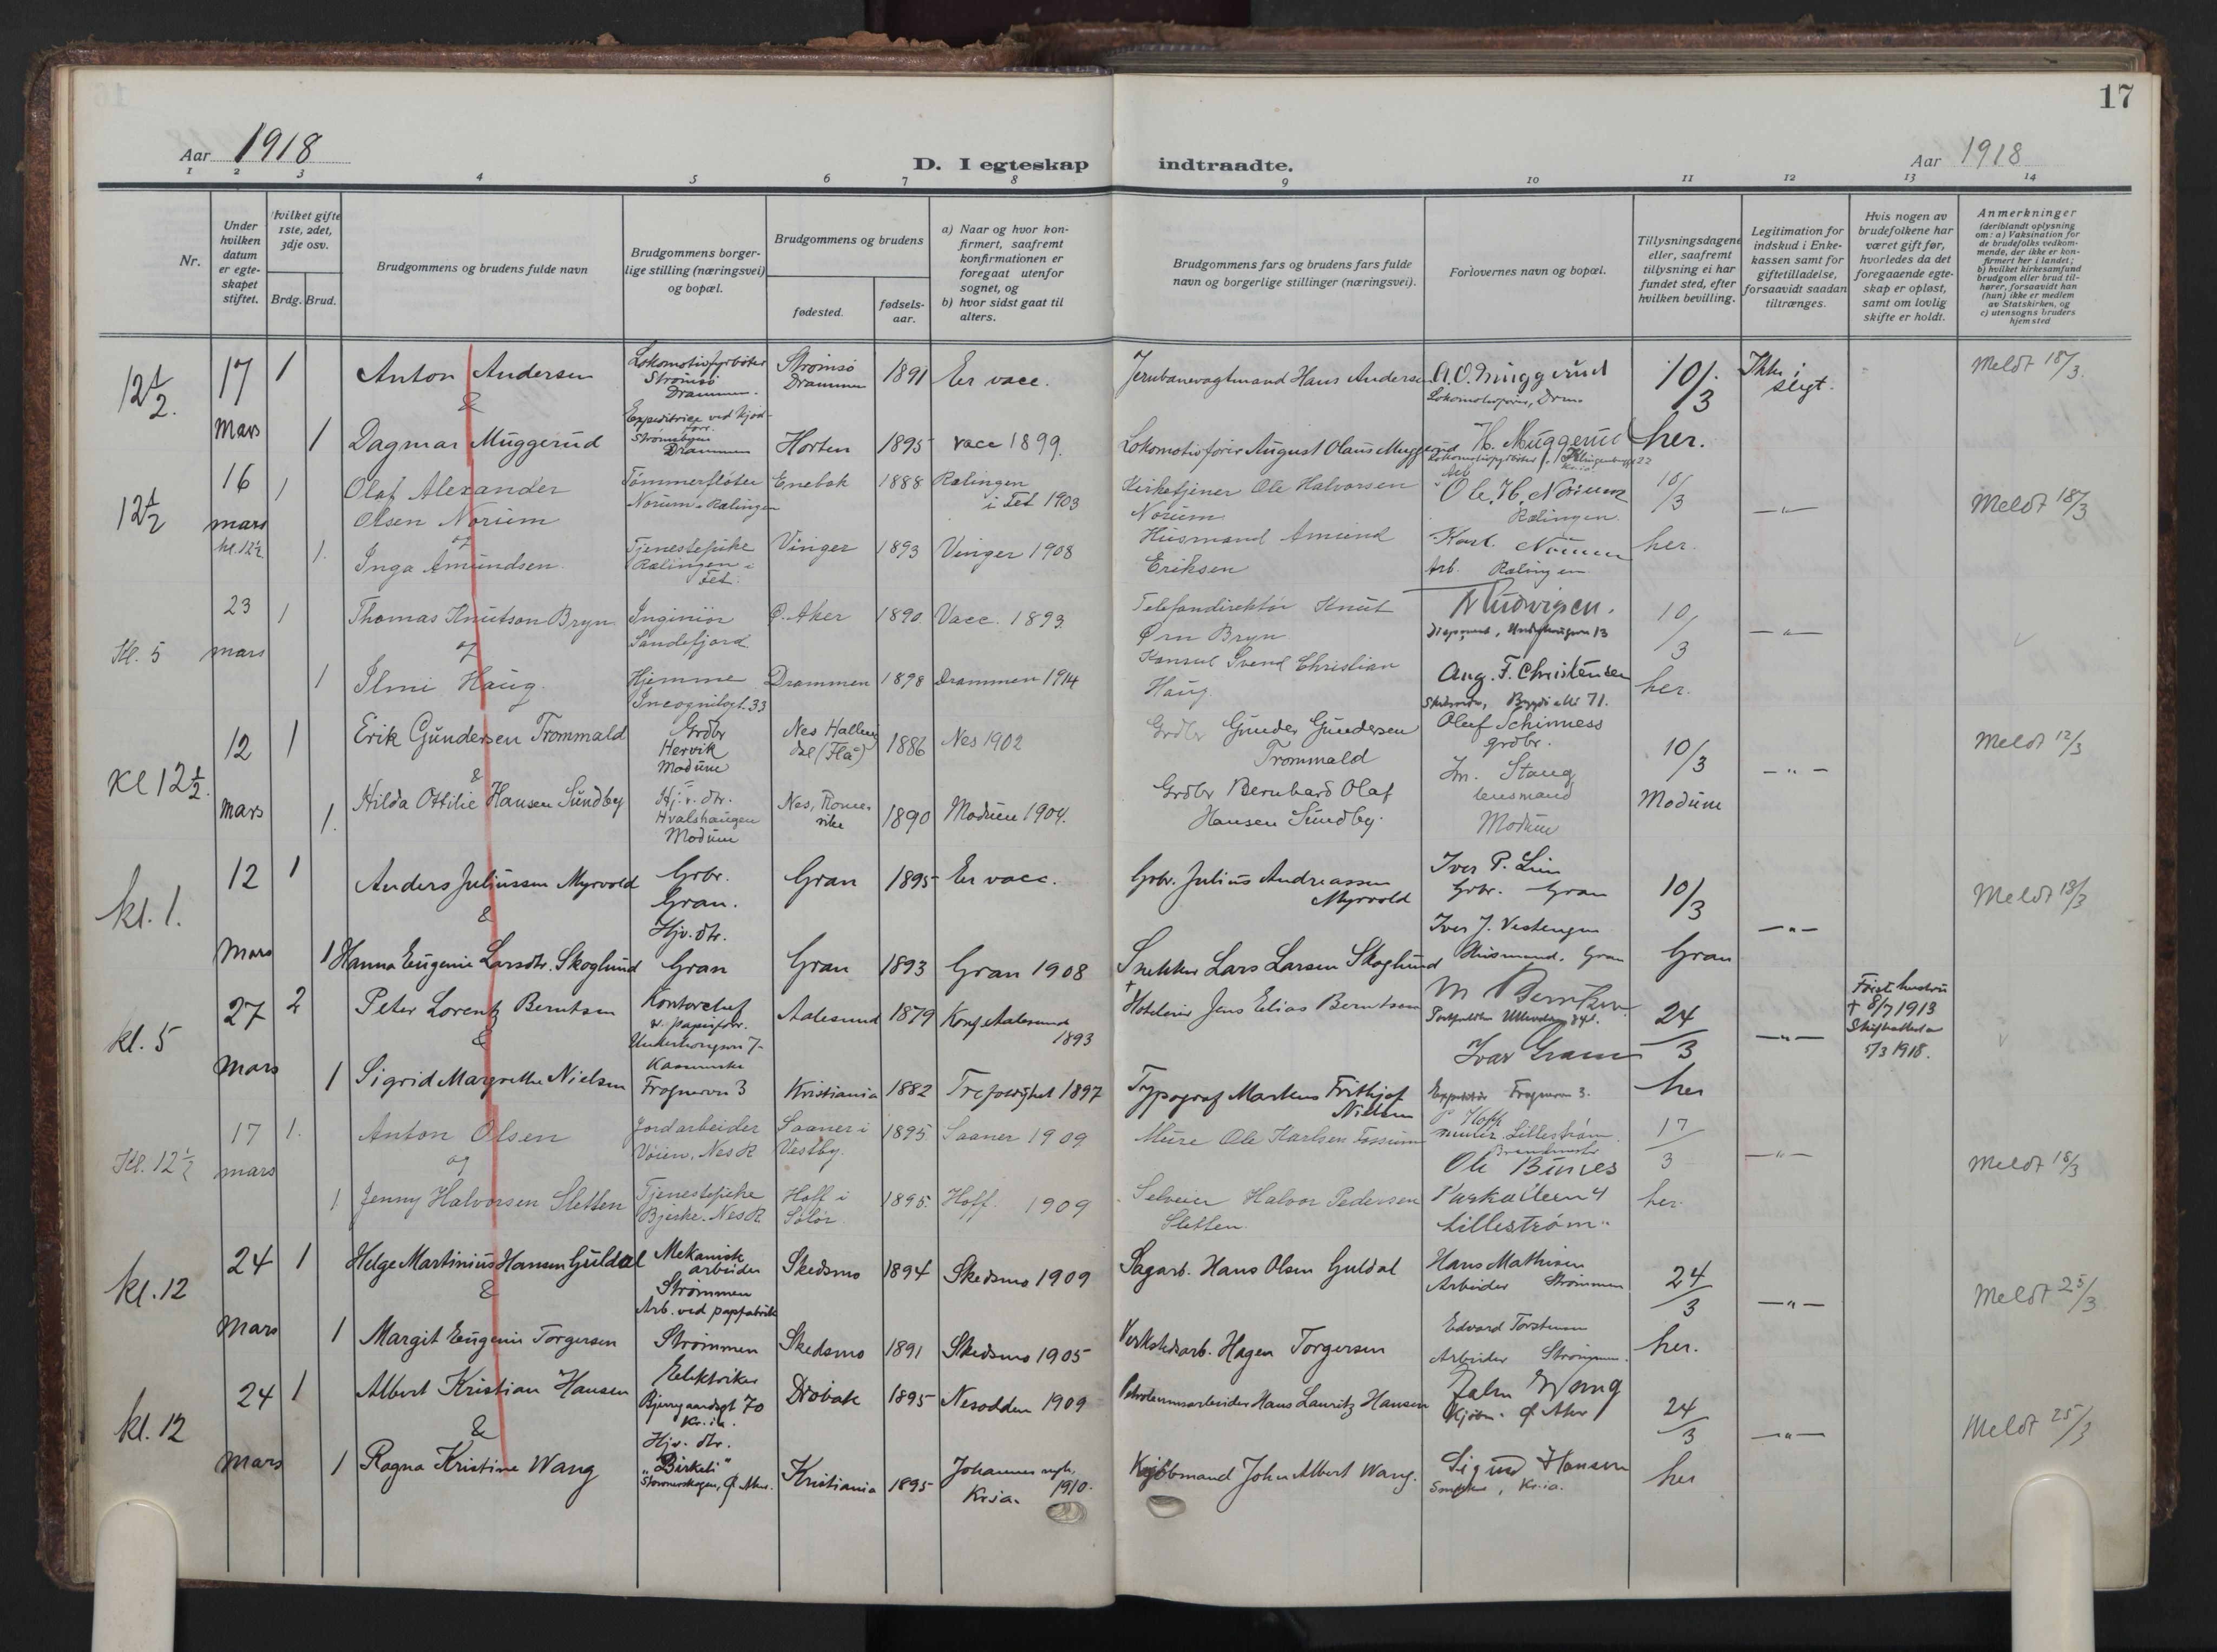 17
Aar 1918
D. I egteskap indtraadte.
Aar 1918
1 2 3 4 5 6 7 8 9 10 11 12 13 14
Nr.
Under hvilken datum er egteskapet stiftet.
Hvilket gifte 1ste, 2det, 3dje osv.
Brdg. Brud.
Brudgommens og brudens fulde navn
Brudgommens borgerlige stilling (næringsvei) og bopæl.
Brudgommens og brudens
fødested.
fødselsaar.
a) Naar og hvor konfirmert, saafremt konfirmationen er foregaat utenfor sognet, og
b) hvor sidst gaat til alters.
Brudgommens fars og brudens fars fulde navn og borgerlige stillinger (næringsvei).
Forlovernes navn og bopæl.
Tillysningsdagene eller, saafremt tillysning ei har fundet sted, efter hvilken bevilling.
Legitimation for indskud i Enkekassen samt for giftetilladelse, forsaavidt saadan tiltrænges.
Hvis nogen av brudefolkene har været gift før, hvorledes da det foregaaende egteskap er opløst, samt om lovlig skifte er holdt.
Anmerkninger (deriblandt oplysning om: a) Vaksination for de brudefolks vedkommende, der ikke er konfirmert her i landet; b) hvilket kirkesamfund brudgom eller brud tilhører, forsaavidt han (hun) ikke er medlem av Statskirken, og c) utensogns bruders hjemsted
12 1/2. 17 1 Anton Andersen Lokomotivfyrbøter Strømsø Drammen. Strømsø Drammen 1891 Er vacc. Jernbanevagtmand Hans Andersen A.O. Muggerud 10/3 Ikke i slegt. Meldt 18/3.
&
mars 1 Dagmar Muggerud Expeditrice ved Kjødforr. Drammen Horten 1895 vacc 1899. Lokomotivfører August Olaus Muggerud H. Muggerud her.
12 1/2 16 1 Olaf Alexander Olsen Norum Tømmerfløter Norum i Rælingen Enebak 1888 Rælingen i Fet 1903 Kirketjener Ole Halvorsen Norum Arb. Ole H. Norum Rælingen. 10/3 —„— Meldt 18/3
mars kl. 12 1/2 og
1. Inga Amundsen. Tjenestepike Rælingen i Fet. Vinger 1893 Vinger 1908 Husmand Amund Eriksen Karl Norum Arb. Rælingen her.
Kl. 5 23 1 Thomas Knutson Bryn. Ingeniør Sandefjord. Ø. Aker 1890. Vacc. 1893. Telefondirektør Knut Ørn Bryn 10/3 —„—
mars og
1 Ilmi Haug. Hjemme Incognitogt. 33 Drammen 1898 Drammen 1914 Konsul Svend Christian Haug. Aug. F. Christensen 71. her.
Kl 12 1/2. 12 1 Erik Gundersen Trommald Grdbr Hervik Modum Nes Hallingdal (Flå) 1886 Nes 1902 Grdbr Gunder Gundersen Trommald Oluf Schinness grdbr. 10/3 —„— Meldt 12/3
&
mars 1. Hilda Ottilie Hansen Sundby Hj. v. dtr. Hvalshaugen Modum Nes, Romerike 1890 Modum 1904. Grdbr Bernhard Olaf Hansen Sundby. Stang lensmand Modum Modum
kl. 1. 12 1 Anders Juliussen Myrvold Grbr. Gran. Gran 1895 Er vacc. Grbr. Julius Andreassen Myrvold Iver P. Lien Grbr. Gran 10/3 —„— Meldt 18/3
&
mars 1 Hanna Eugenie Larsdtr. Skoglund Hjv. dtr. Gran Gran 1893 Gran 1908 Snekker Lars Larsen Skoglund Iver J. Vestengen Husmand. Gran Gran
kl. 5 27 2 Peter Lorentz Berntsen Kontorchef v. papirforr. Underhaugsvn 7 Aalesund 1879 Konf. Aalesund 1893 † Hoteleier Jens Elias Berntsen M Berntsen 24/3 —„— Første hustru † 8/7 1913 5/3 1918.
&
mars 1 Sigrid Margrethe Nielsen Frognervn 3 Kristiania 1882 Trefoldighet 1897 Typograf Martens Frithjof Nielsen Ivar Gram Frognervn 3. her
Kl. 12 1/2 17 1. Anton Olsen Jordarbeider Voien, Nes R Saaner i Vestby. 1895. Saaner 1909 Mure Ole Karlsen Fossum Lillestrøm. 17/3 —„— Meldt 18/3
mars og
1 Jenny Halvorsen Sletten Tjenestepike Bjerke. Nes R. Hoff i Solør. 1895. Hoff. 1909 Selveier Halvor Pedersen Sletten. Ole Lillestrøm her.
kl. 12 24 1 Helge Martinius Hansen Guldal Mekanisk arbeider Strømmen Skedsmo 1894 Skedsmo 1909 Sagarb. Hans Olsen Guldal Hans Mathisen Arbeider Strømmen 24/3 —„— Meldt 25/3
&
mars 1 Margit Eugenie Torgersen Arb. ved papfabrik Strømmen Skedsmo 1891 Skedsmo 1905 Verkstedarb. Hagen Torgersen Edvard Torstensen Arbeider Strømmen. her.
kl. 12 24 1 Albert Kristian Hansen Elektriker Bjerregaardsgt 70 Kr.ia. Drøbak 1895 Nesodden 1909 Petroleumsarbeider Hans Lauritz Hansen John Wang Kjøbm. Ø. Aker 24/3 —„— Meldt 25/3
&
mars 1 Ragna Kristine Wang Hjv. dtr. „Birkeli" Ø. Aker. Kristiania 1895 Johannes mgh. Kr.ia. 1910. Kjøbmand John Albert Wang. Sigurd Hansen Kr.ia. her